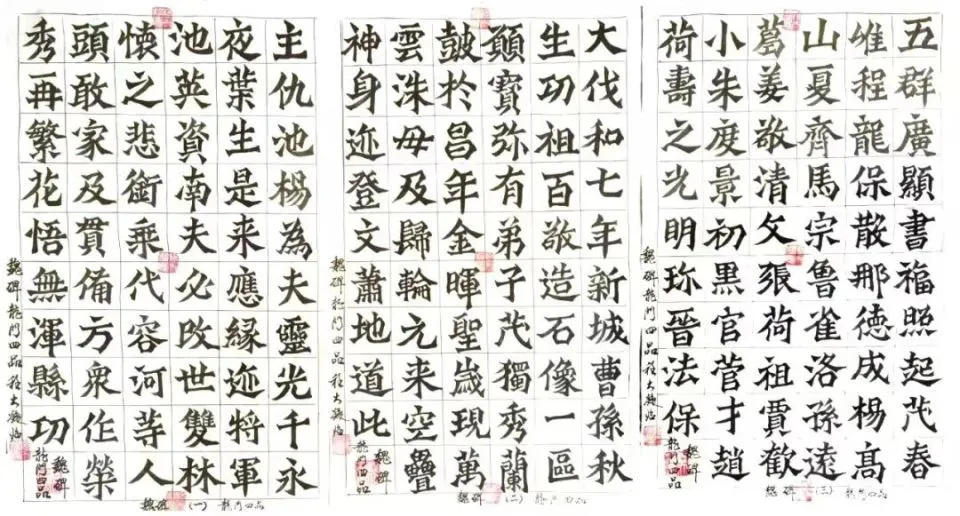 主仇池楊為夫靈光千永
夜葉生是来應縁迹將軍
池英資南夫必改世雙林
懷之悲銜乘代容河等人
頭敢家及貫備方衆作榮
秀再繁花悟無渾縣功
魏碑
龍門四品
魏碑龍門四品程大臨
魏碑（一）龍門四品
大伐和七年新城曹孫秋
生功祖百敬造石像一區
願寶弥有弟子茂獨秀蘭
皷於昌年金暉聖嵗現萬
雲洙毋及歸輪元来空疊
神身迹登文蕭地道此
魏碑
龍門四品
魏碑龍門四品程大臨
魏碑（二）龍門四品
五群廣顯書福照起茂春
維程龍保散那德成楊高
山夏齊馬宗魯雀洛孫遠
葛姜敬清攵張荷祖賈歡
小朱度景初黒官菅才趙
荷壽之光明珎晉法保
魏碑
龍門四品
魏碑龍門四品程大臨
魏碑（三）龍門四品